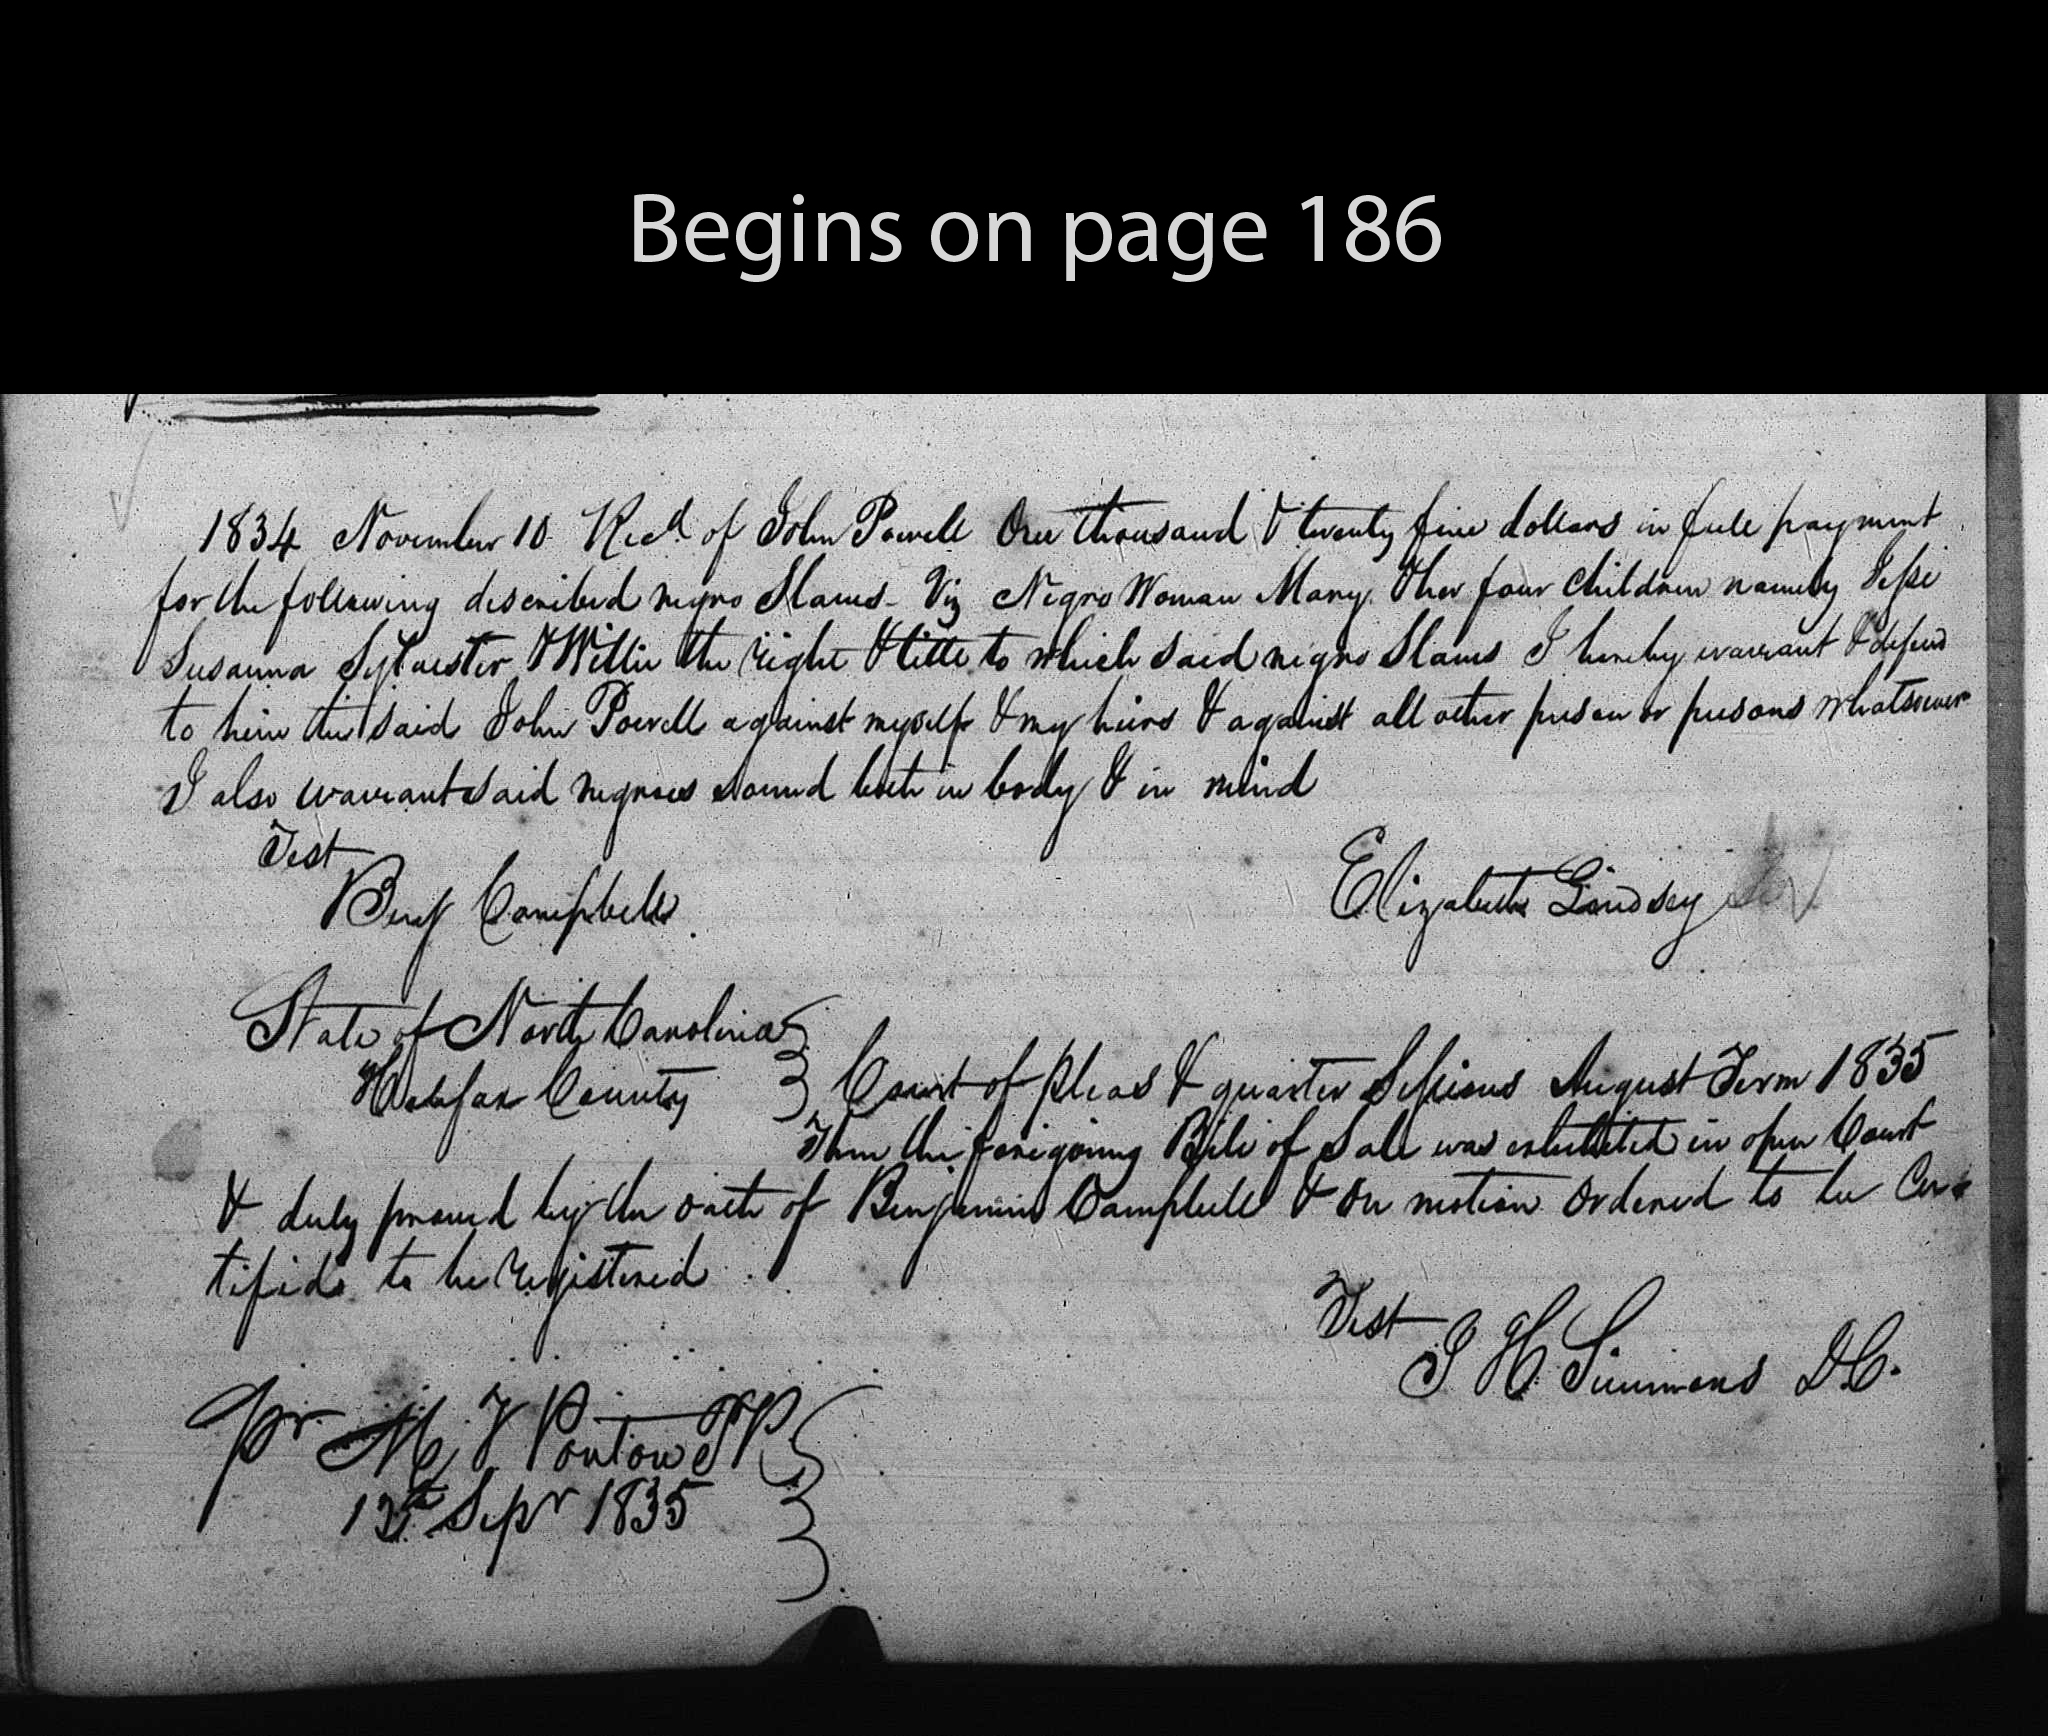 Begins on page 186
1834 November 10 Recd of John Powell One thousand & twenty five dollars in full payment
for the following described negro Slaves - Viz Negro Woman Mary & her four children namely Jesse
Susanna Sylvester & Willie the right & title to which said negro Slaves I hereby warrant & defend
to him the said John Powell against myself & my heirs & against all other person or persons whatsoever
I also warrant said negroes sound both in body & in mind
Test
Benj Campbell
Elizabeth Lindsey
State of North Carolina
Halifax County
Court of pleas & quarter Sessions August Term 1835
Then the foregoing Bill of Sale was exhibited in open Court
& duly proved by the oath of Benjamin Campbell & on motion Ordered to be Cer
tified to be registered
Test
J H Simmons D.C.
pr M, T Ponton P R
13th Sepr 1835